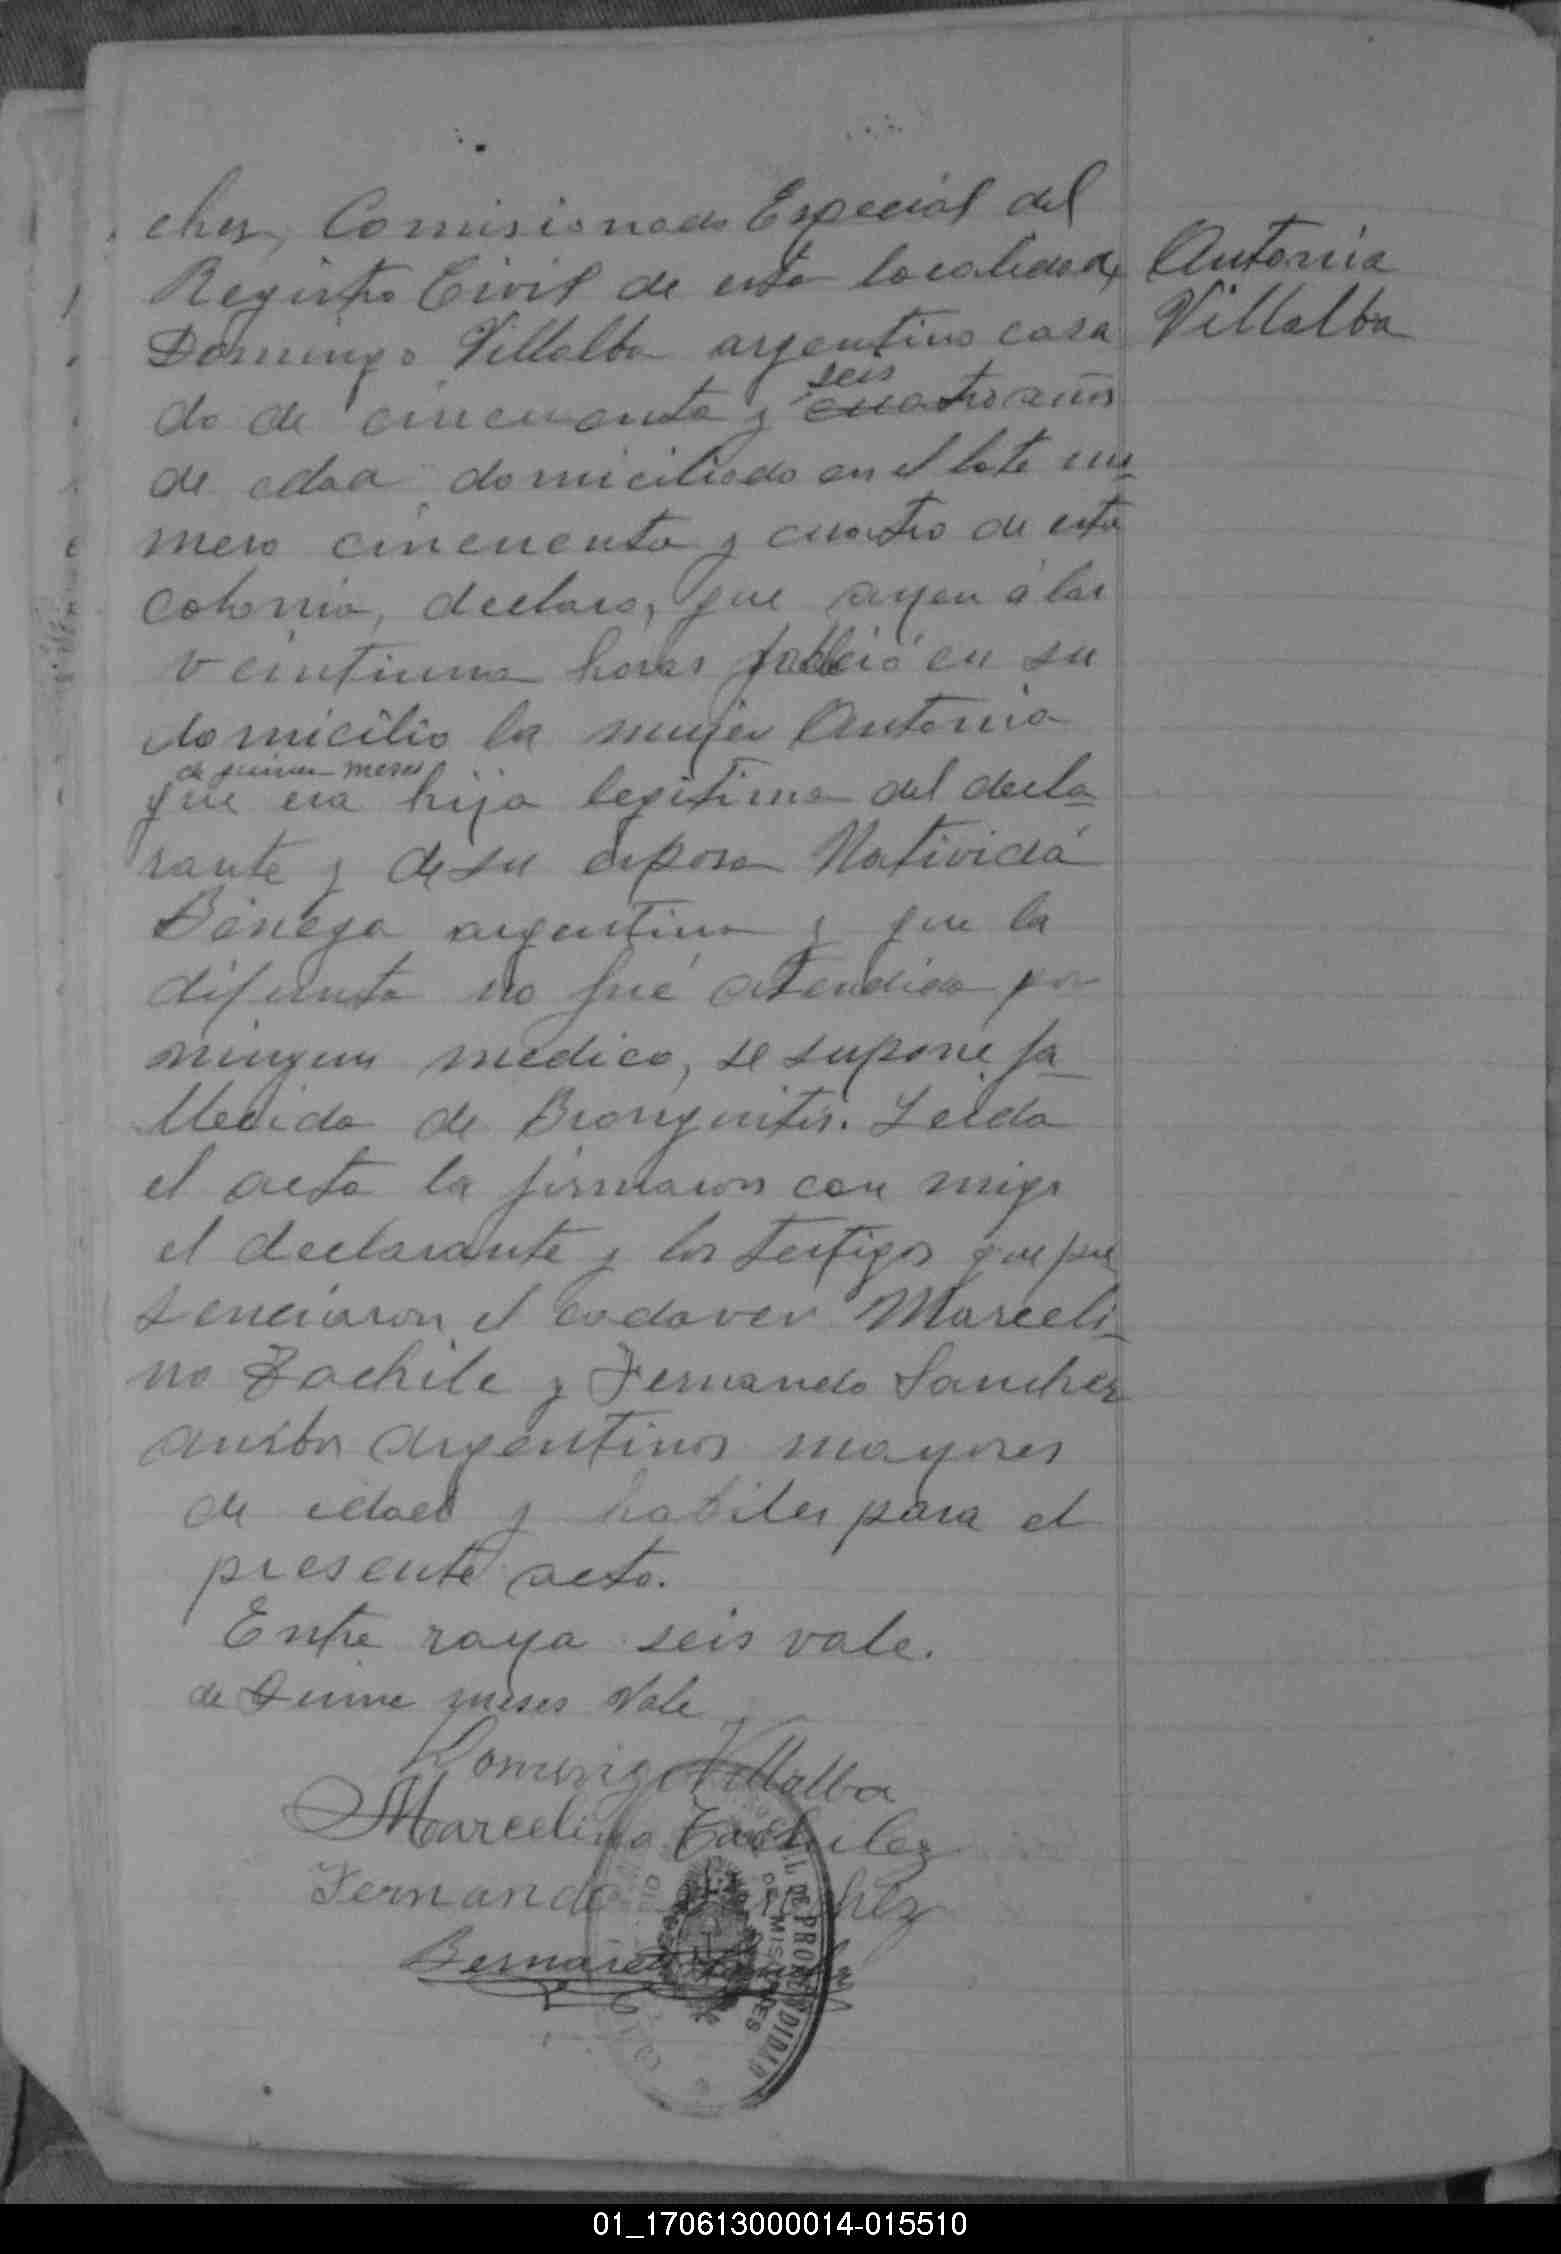 ches, Comisionado Especial del
Registro Civil de esta localidad,
Antonia
Villalba
Domingo Villalba argentino casa
do de cincuenta y cuatro años
seis
de edad domiciliado en el lote nu-
mero cincuenta y cuatro de esta
colonia, declaro, que ayer á las
veintiuna horas falleció en su
domicilio la mujer Antonia
de quince meses
que era hija legitima del decla-
rante y de su esposa Natividá
Benega argentina y que la
difunta no fué atendida por
ningun medico, se supone fa-
llecida de Bronquitis. Leida
el acta la firmaron con migo
el declarante y los testigos que pre
senciaron el cadaver Marceli-
no Tachile y Fernando Sanchez
ambos argentinos mayores
de edad y habiles para el
presente acto.
Entre raya seis vale.
de Quince meses Vale
Domingo Villalba
Marcelino Tachilez
Fernando
Bernardo
DE PRO
DE MISIONES
01_170613000014-015510